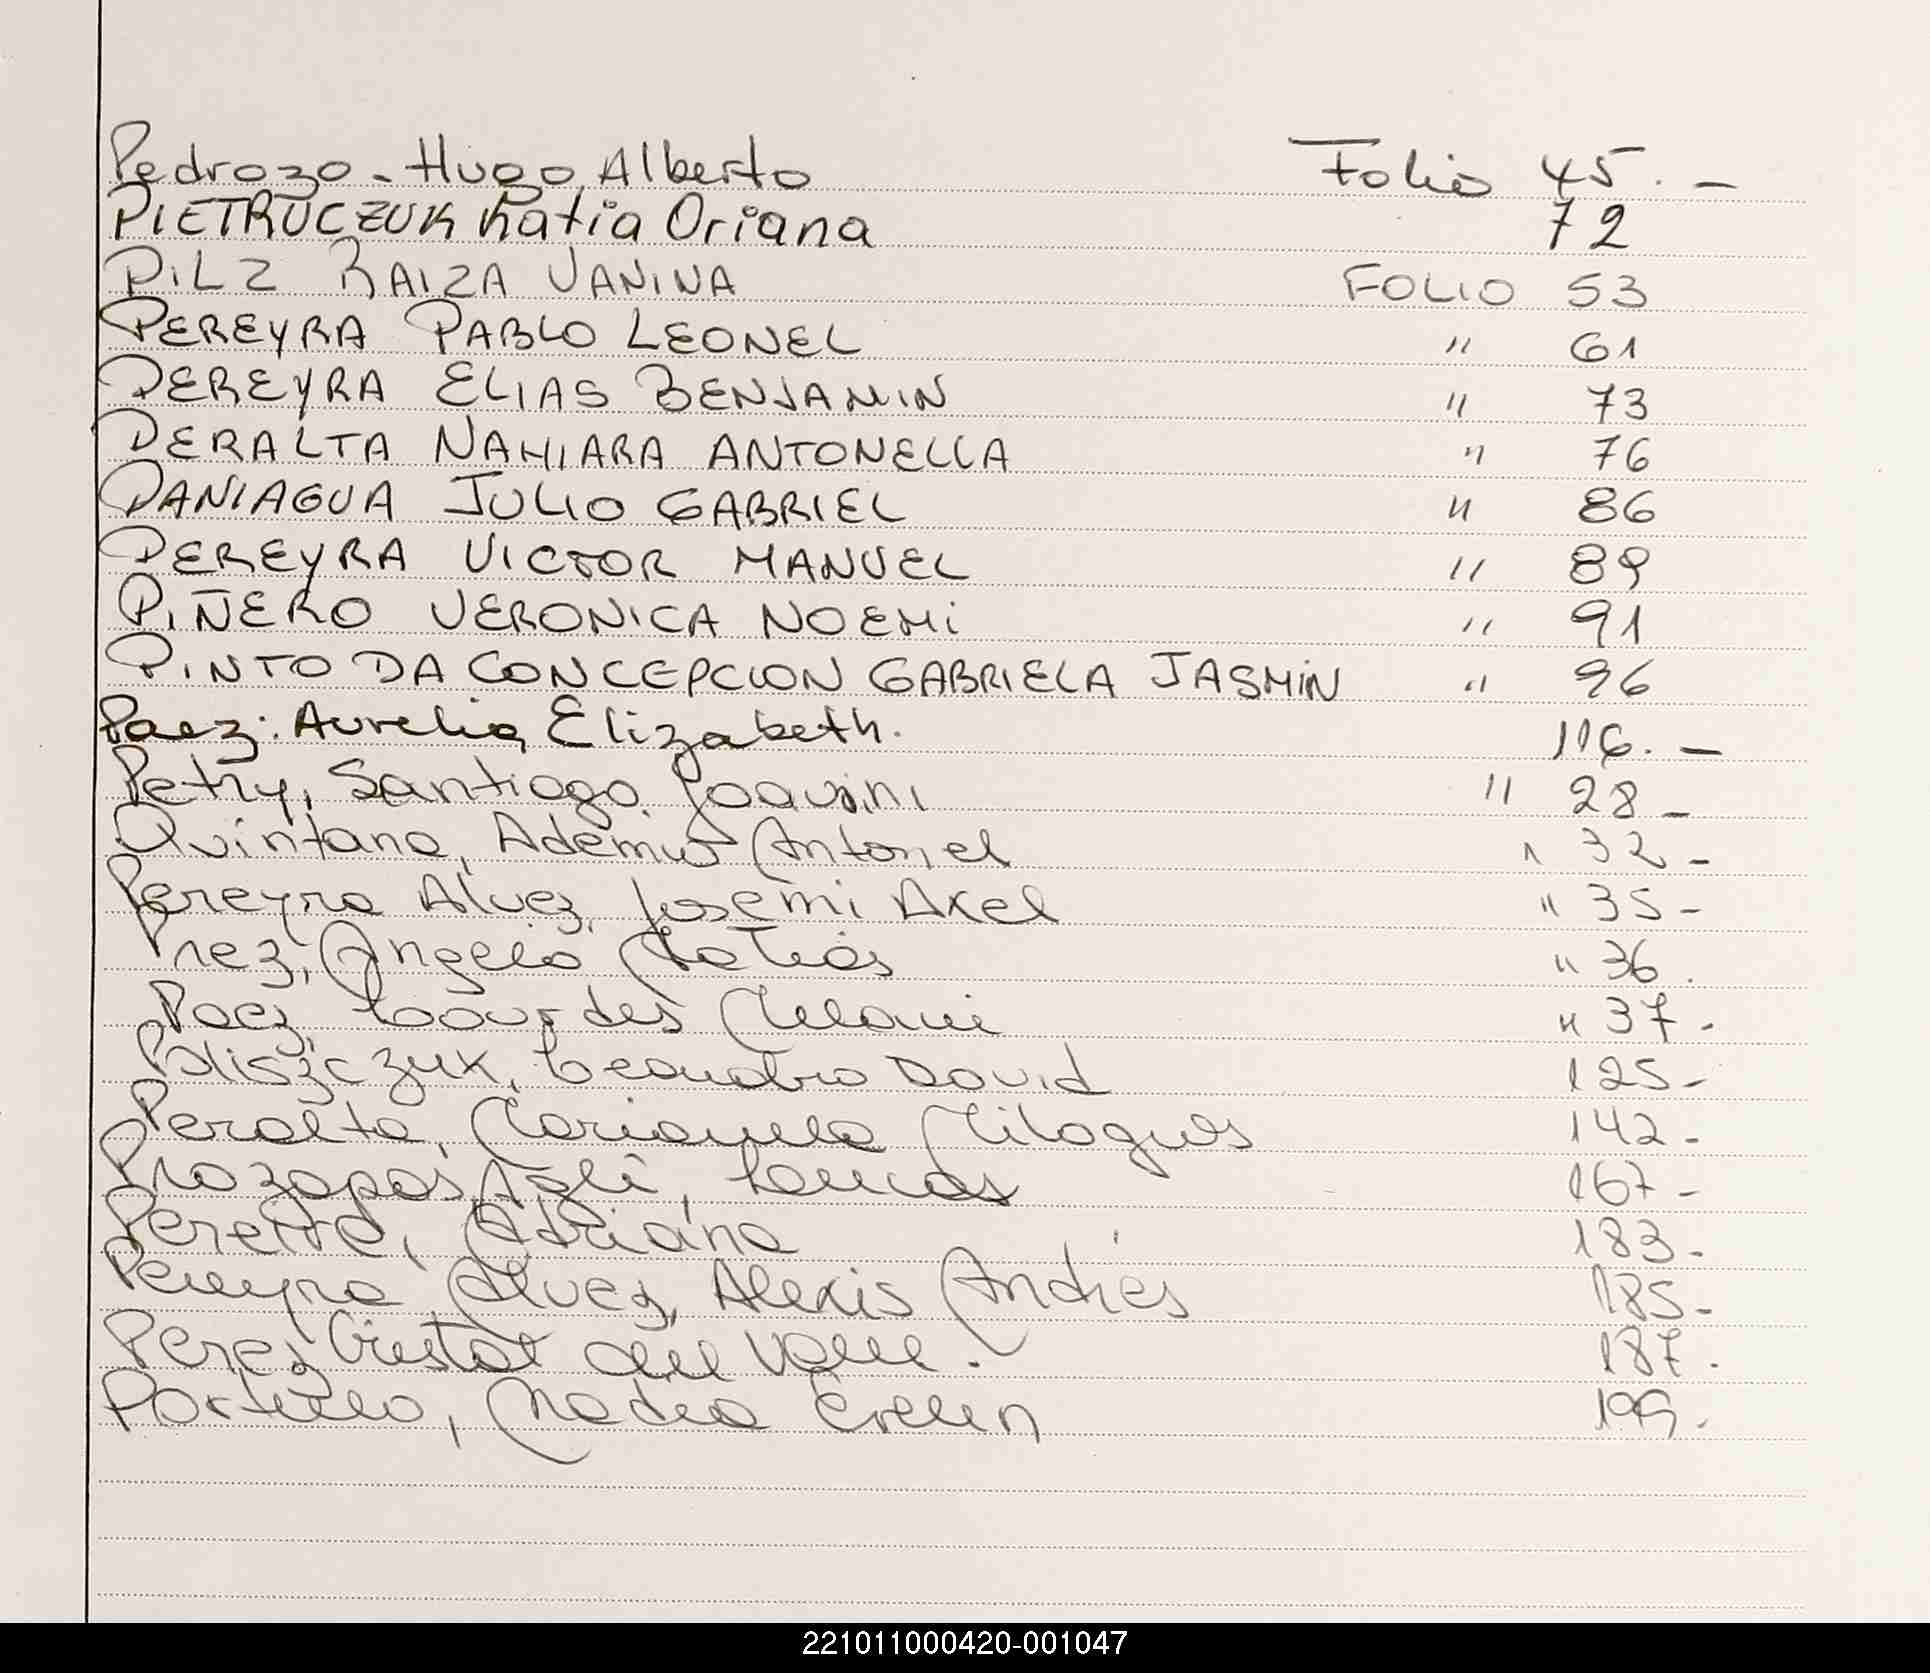 Pedrozo - Hugo Alberto Folio 45. -
PIETRUCZUK Katia Oriana 72
PILZ RAIZA VANINA FOLIO 53
PEREYRA PABLO LEONEL " 61
PEREYRA ELIAS BENJAMIN " 73
PERALTA NAHIARA ANTONELLA " 76
PANIAGUA JULIO GABRIEL " 86
PEREYRA VICTOR MANUEL " 89
PIÑERO VERONICA NOEMI " 91
PINTO DA CONCEPCION GABRIELA JASMIN " 96
Paez: Aurelia Elizabeth. 116. -
Petry, Santiago Joaquin " 28 -
Quintana, Ademir Antonel " 32 -
Pereyra Alvez, Josemi Axel " 35 -
Angelo Matias " 36.
Paez, Lourdes Melani " 37.
Poliszczuk, Leandro David 125 -
Peralta, Marianela Milagros 142 -
Lucas 167 -
Adriana 183 -
Pereyra Alvez, Alexis Andrés 185 -
Perez Cristal del Valle. 187.
Portillo, Nadia Evelin 199.
221011000420-001047